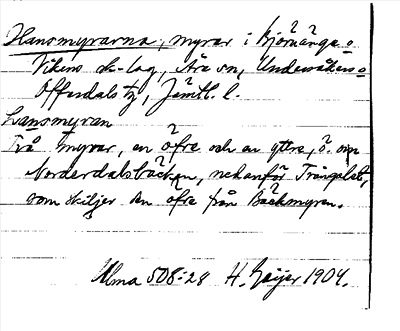 Hansmyrarna, myrar i Björnänge o
Vikens sk-lag, Åre sn, Undersåkers o
Offerdals tg, Jämtl. l.
Hansmyran
Två myrar, en öfre och en yttre, ö. om
Norderdalsbäcken, nedanför Trångslåt,
som skiljer den öfre från Bäckmyren.
Ulma 508:28 H. Geijer 1904.